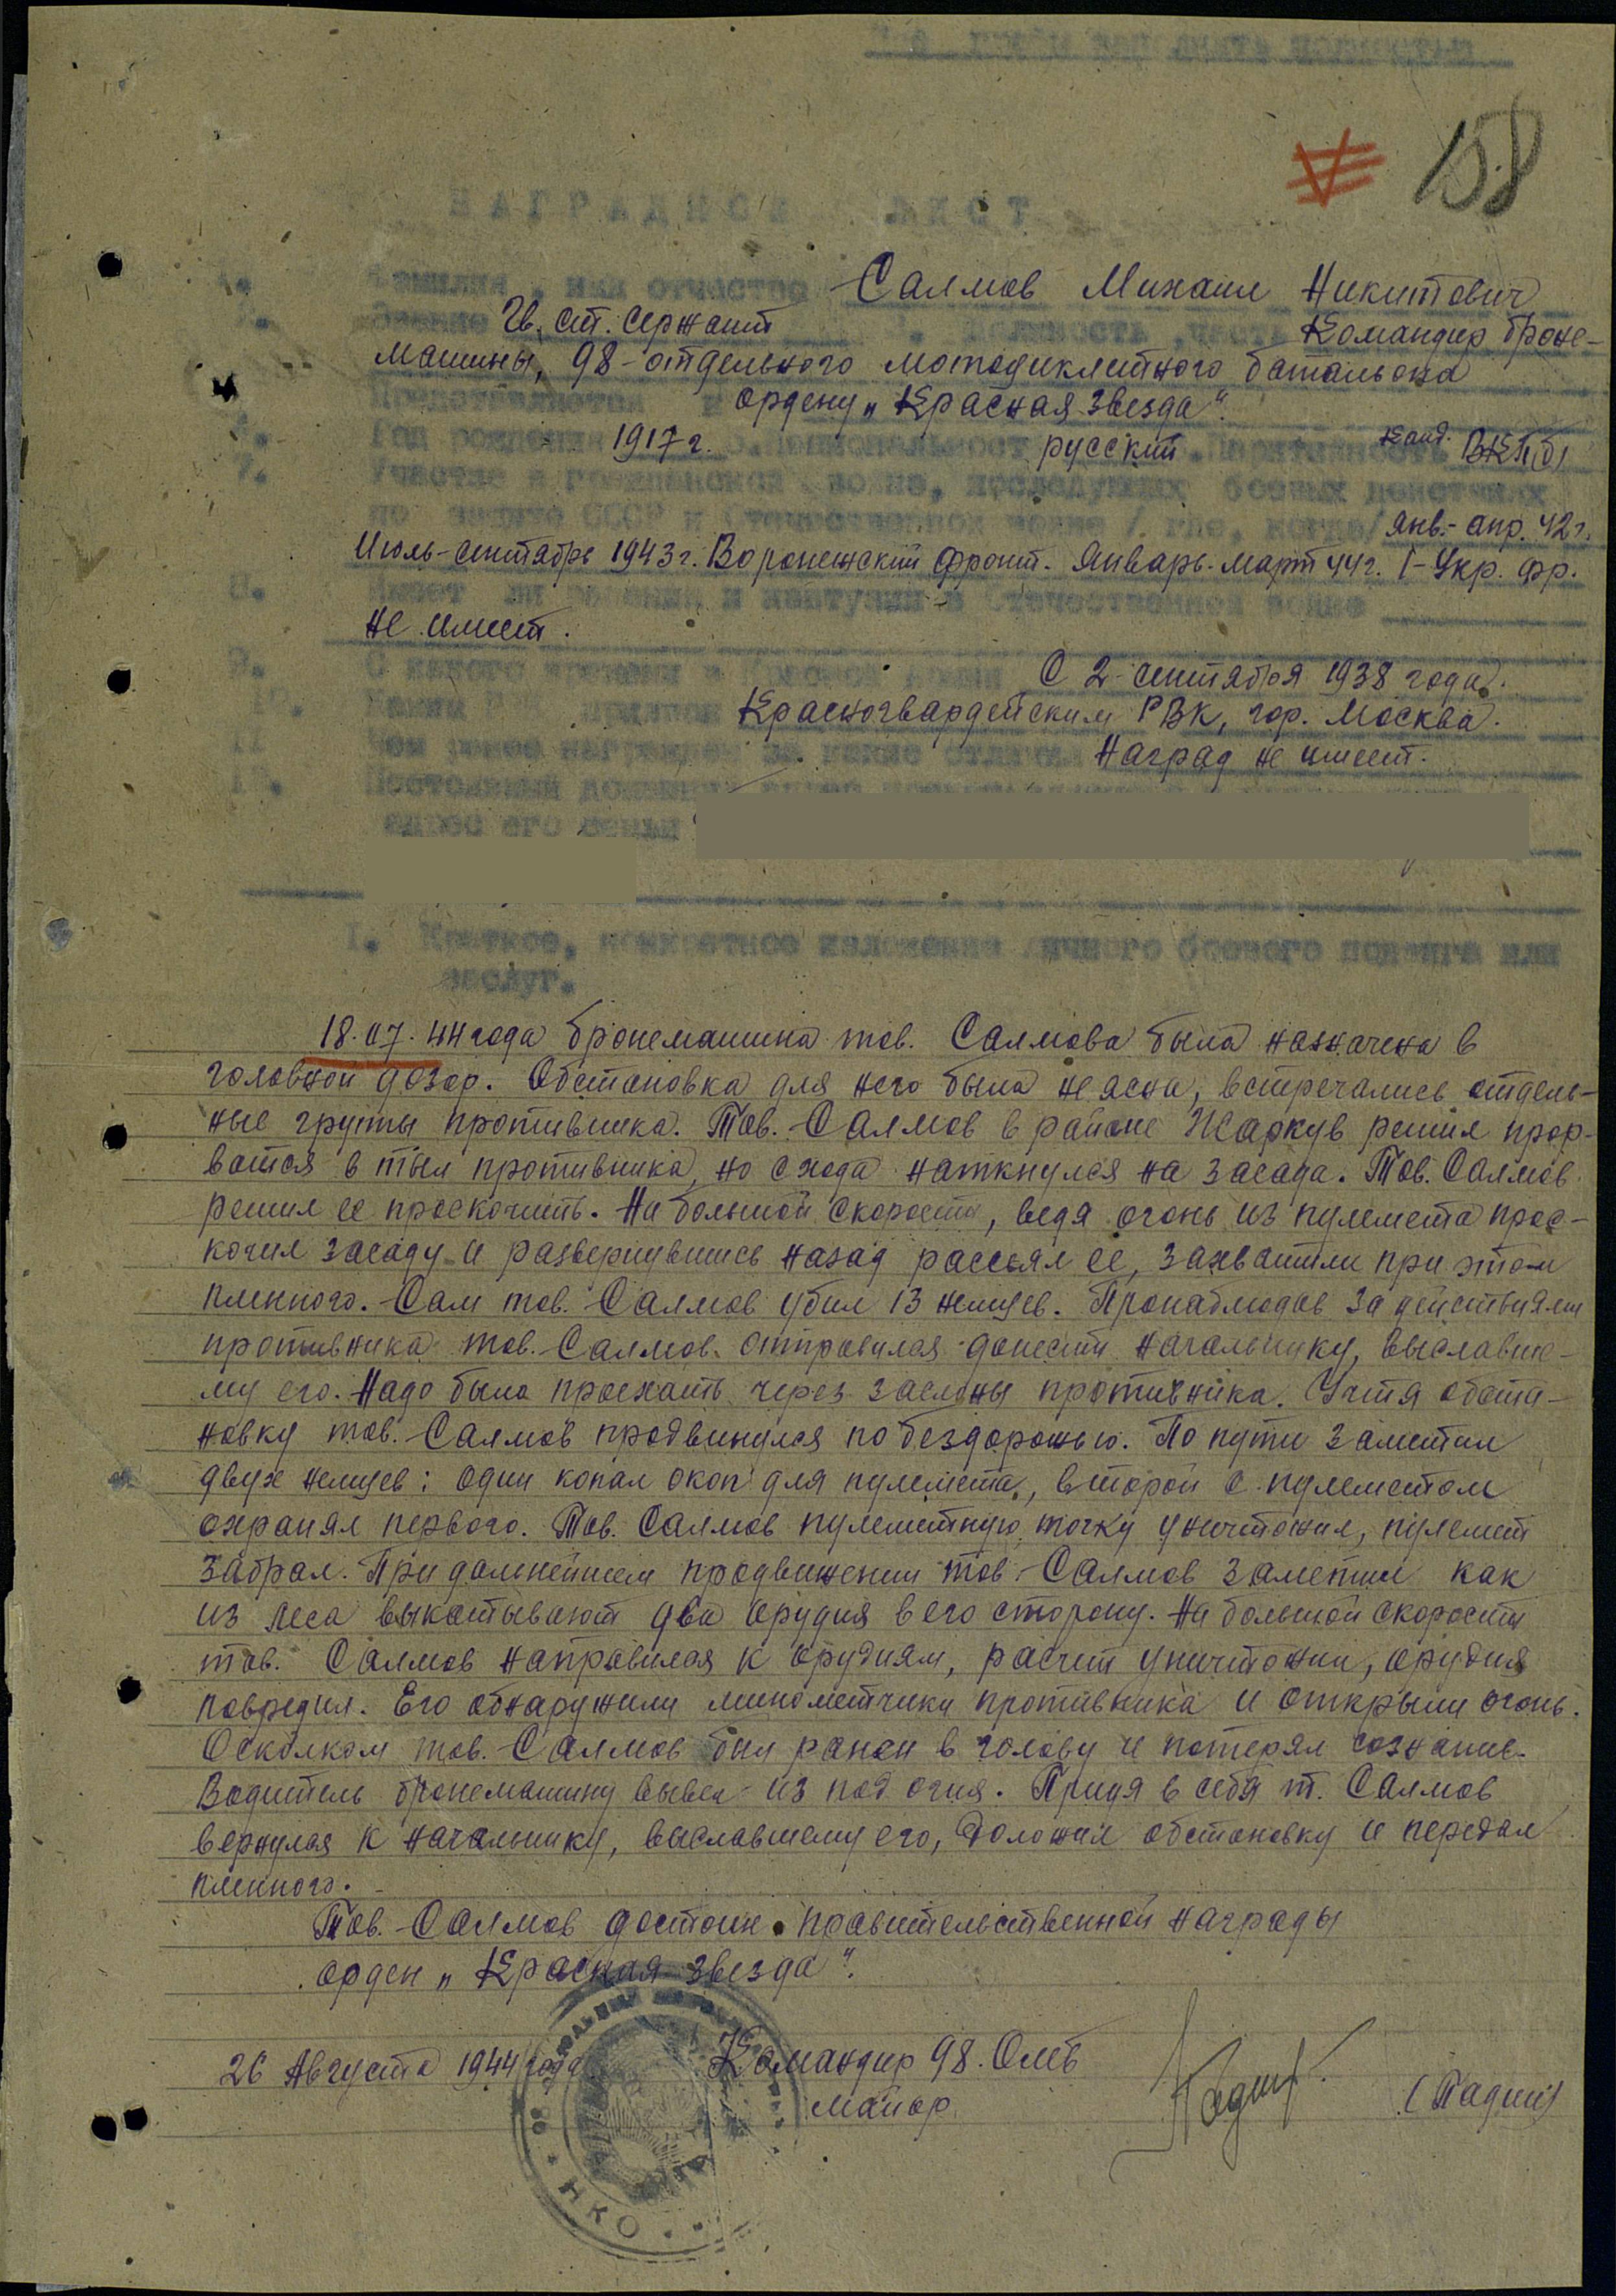 158
НАГРАДНОЙ ЛИСТ
1. Фамилия, имя отчество Саямов Михаил Никитович
2. Звание Гв. ст. сержант 3. Должность, часть Командир броне-
машины, 98-отдельного мотоциклетного батальона
Представляется к ордену „Красная звезда".
5. Год рождения 1917 г. 6. Национальност русский. Партийность канд. ВКП(б)
7. Участие в гражданской войне, последующих боевых действиях
по защите СССР и Отечественной войне /где, когда/ янв.-апр. 42 г.
Июль-сентябрь 1943 г. Воронежский фронт. Январь-март 44 г. I-Укр. фр.
8. Имеет ли ранения и контузии в Отечественной войне
не имеет.
9. С какого времени в Красной Армии С 2 сентября 1938 года.
10. Каким РВК призван Красногвардейским РВК, гор. Москва.
11. Чем ранее награжден за какие отличия Наград не имеет.
12. Постоянный домашний адрес
адрес его семьи
I. Краткое, конкретное изложение личного боевого подвига или
заслуг.
18.07.44 года бронемашина тов. Саямова была назначена в
головной дозор. Обстановка для него была не ясна, встречались отдель-
ные групы противника. Тов. Саямов в районе Жаркув решил прор-
ватся в тыл противника, но с хода наткнулся на засада. Тов. Саямов
решил ее проскочить. На большой скорости, ведя огонь из пулемета прос-
кочил засаду и развернувшись назад рассеял ее, захватили при этом
пленного. Сам тов. Саямов убил 13 немцев. Пронаблюдав за действиями
противника тов. Саямов отправился донести начальнику, выславше-
му его. Надо было проехать через заслоны противника. Учтя обста-
новку тов. Саямов продвинулся по бездорожью. По пути заметил
двух немцев: один копал окоп для пулемета, второй с пулеметом
охранял первого. Тов. Саямов пулеметную точку уничтожил, пулемет
забрал. При дальнейшем продвижении тов. Саямов заметил как
из леса выкатывают два орудия в его сторону. На большой скорости
тов. Саямов направился к орудиям, расчет уничтожил, орудия
повредил. Его обнаружили минометчики противника и открыли огонь.
Осколком тов. Саямов был ранен в голову и потерял сознание.
Водитель бронемашину вывел из под огня. Придя в себя т. Саямов
вернулся к начальнику, выславшему его, доложил обстановку и передал
пленного.
Тов. Саямов достоин правительственной награды
орден „Красная звезда".
26 Августа 1944 года Командир 98. Омб
майор
НКО